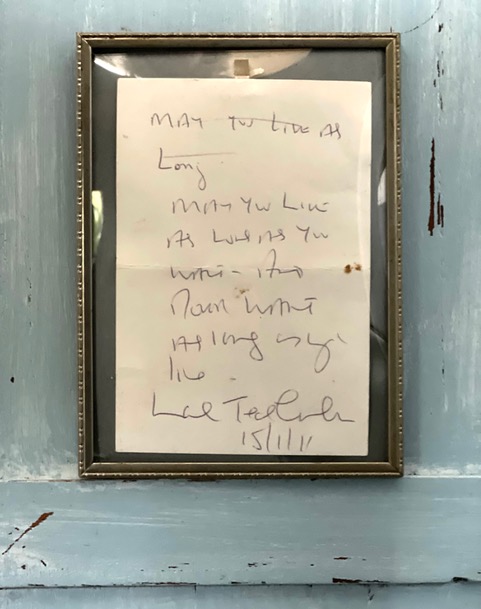 MAY YOU LIVE AS
Long
MAY YOU LIVE
AS LONG AS YOU
WANT - AND
WANT
AS long as you
live.
15/1/11